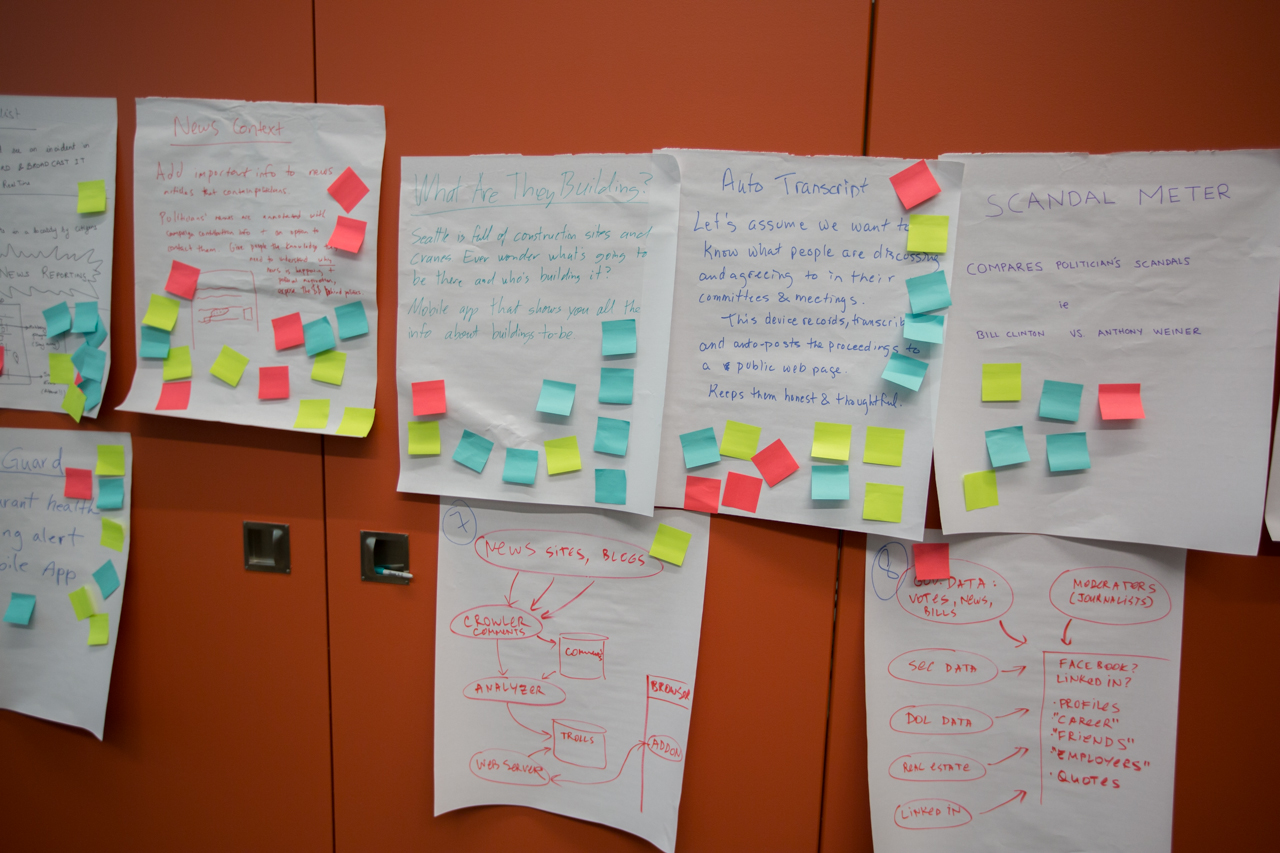 NEWS REPORTING
News Context
Add important info to news
articles that contain politicians.
Politicians' names are annotated with
campaign contributions info + an option to
contact them
What Are They Building?
Seattle is full of construction sites and
cranes. Ever wonder what's going to
be there and who's building it?
Mobile app that shows you all the
info about buildings-to-be.
Auto Transcript
Let's assume we want to
know what people are discussing
and agreeing to in their
committees & meetings.
This device records, transcrib
and auto-posts the proceedings to
a public web page.
Keeps them honest & thoughtful.
SCANDAL METER
COMPARES POLITICIAN'S SCANDALS
ie
BILL CLINTON VS. ANTHONY WEINER
Guard
urant health
ng alert
bile App
7
NEWS SITES, BLOGS
CROWLER
COMMENTS
COMMENTS
ANALYZER
TROLLS
WEB SERVER
BROWSER
ADDON
8
GOV. DATA:
VOTES, NEWS,
BILLS
MODERATORS
(JOURNALISTS)
SEC DATA
DOL DATA
REAL ESTATE
LINKED IN
FACEBOOK?
LINKED IN?
· PROFILES
· "CAREER"
· "FRIENDS"
· "EMPLOYERS"
· QUOTES